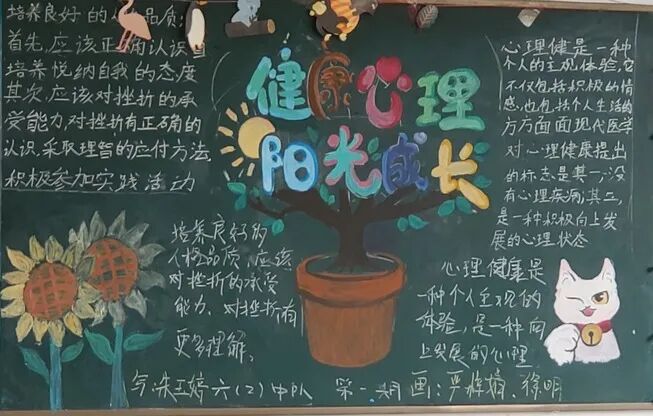 培养良好的人 品质:
首先,应该正确认识自
培养悦纳自我的态度
其次,应该对挫折的承
受能力,对挫折有正确的
认识,采取理智的应付方法
积极参加实践活动
健康心理
阳光成长
心理健是一种
个人的主观体验,它
不仅包括积极的情
感,也包括个人生活的
方方面面现代医学
对心理健康提出
的标志是其一,没
有心理疾病;其二,
是一种积极向上发
展的心理状态
培养良好的
人格品质,应该
对挫折的承受
能力、对挫折有
更多理解。
心理健康是
一种个人主观的
体验,是一种向
上发展的心理
六(2)中队 第一期 画: 严 徐明